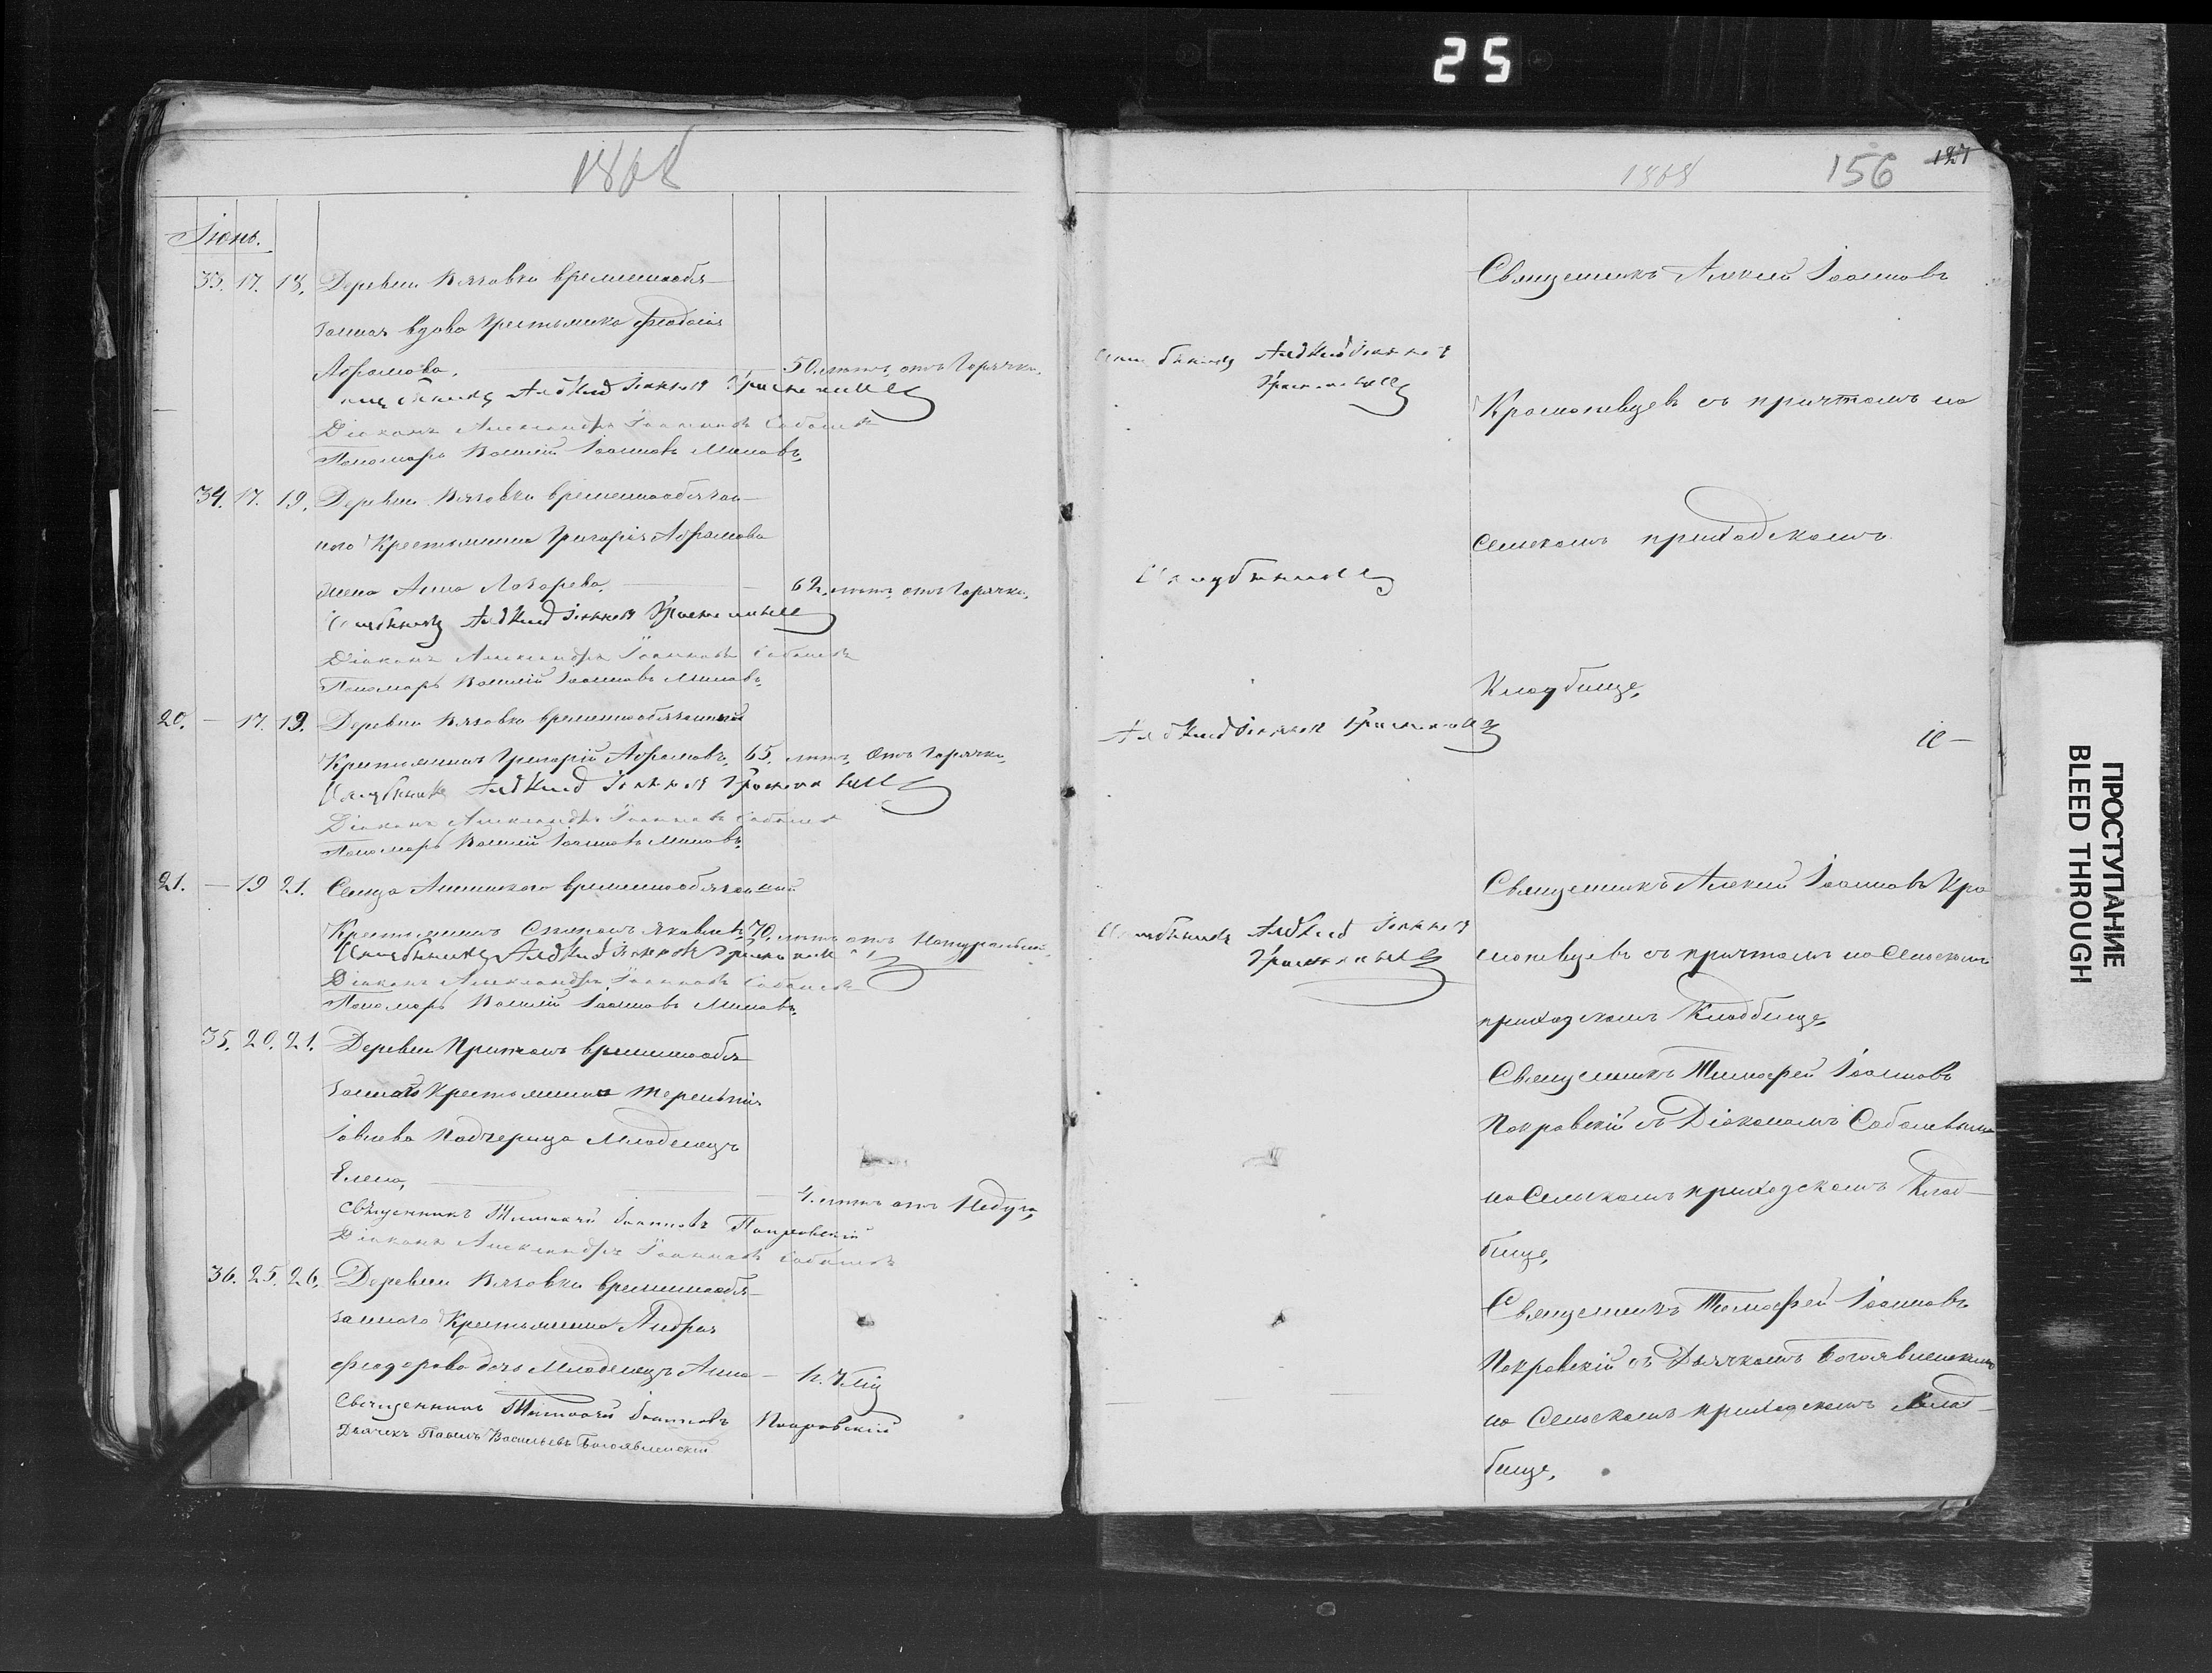 25
1868
Іюнь.
33. 17. 18. Деревни Вязовки временнообя-
занная вдова Крестьянка Феодосія
Абрамова. 50. лѣтъ, отъ Горячки.
Діаконъ Александръ Іоанновъ Соболевъ
Пономарь Василій Іоанновъ Миновъ,
34. 17. 19. Деревни Вязовки временнообязан-
наго Крестьянина Григорія Абрамова
жена Анна Лазарева, 62. лѣтъ, отъ Горячки,
Священникъ Алексій Іоанновъ
Діаконъ Александръ Іоанновъ Соболевъ
Пономарь Василій Іоанновъ Миновъ,
20. — 17. 19. Деревни Вязовки временнообязанный
Крестьянинъ Григорій Абрамовъ, 65. лѣтъ, Отъ Горячки,
Священникъ Алексій Іоанновъ
Діаконъ Александръ Іоанновъ Соболевъ
Пономарь Василій Іоанновъ Миновъ,
21. — 19 21. Сельца временнообязанный
Крестьянинъ Яковлевъ 70. лѣтъ отъ Натуральной
Священникъ Алексій Іоанновъ
Діаконъ Александръ Іоанновъ Соболевъ
Пономарь Василій Іоанновъ Миновъ,
35. 20. 21. Деревни временнообя-
заннаго Крестьянина Терентія
Іовлева Падчерица Младенецъ
Елена, 4. лѣтъ отъ Недуга,
Священникъ Тимофей Іоанновъ Покровскій
Діаконъ Александръ Іоанновъ Соболевъ
36. 25. 26. Деревни Вязовки временнообя-
заннаго Крестьянина Андрея
Феодорова дочь Младенецъ Анна —
Священникъ Тимофей Іоанновъ Покровскій
Дьячекъ Павелъ Васильевъ Богоявленскій
1868 156 127
Священникъ Алексій Іоанновъ
съ причтомъ на
Сельскомъ приходскомъ
Кладбище,
Священникъ Алексій Іоанновъ
съ причтомъ на Сельскомъ
приходскомъ Кладбище,
Священникъ Тимофей Іоанновъ
Покровскій съ Діакономъ Соболевымъ
на Сельскомъ приходскомъ Клад-
бище,
Священникъ Тимофей Іоанновъ
Покровскій съ Дьячкомъ Богоявленскимъ
на Сельскомъ приходскомъ Клад-
бище,
ПРОСТУПАНИЕ
BLEED THROUGH